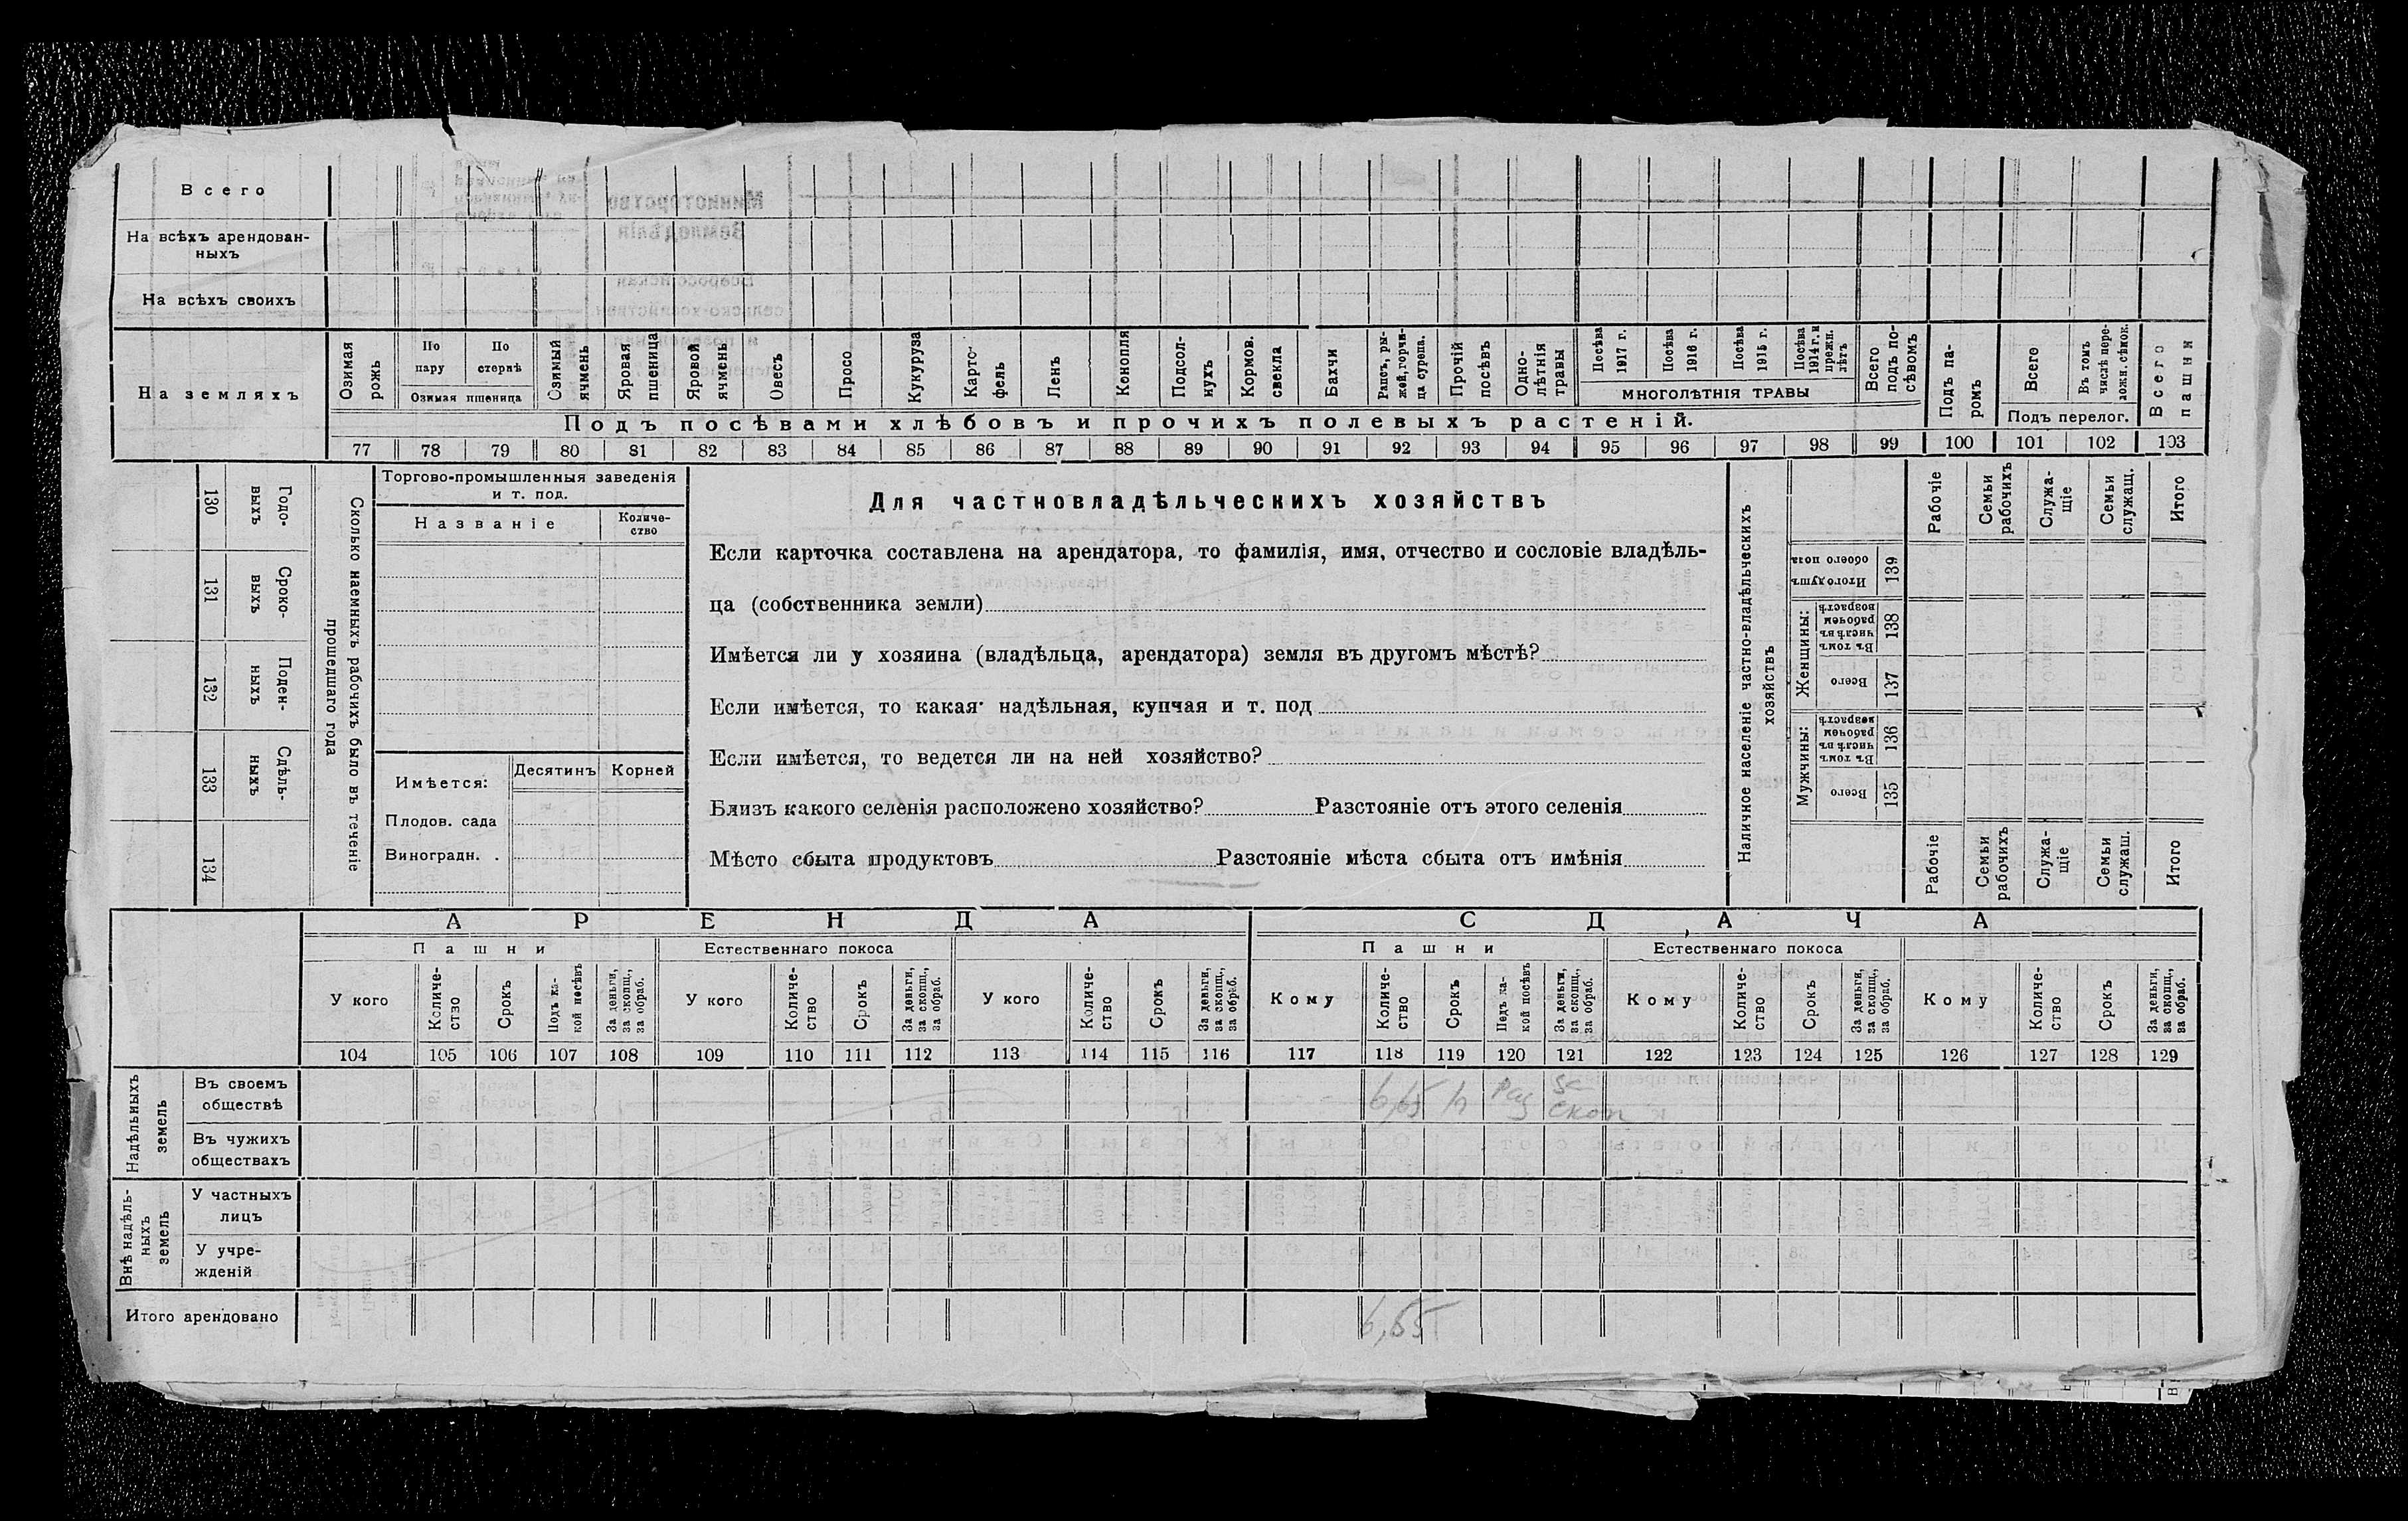 Всего
На всѣхъ арендован-
ныхъ
На всѣхъ своихъ
На земляхъ
Озимая рожь
По пару
По стернѣ
Озимая пшеница
Озимый ячмень
Яровая пшеница
Яровой ячмень
Овесъ
Просо
Кукуруза
Карто-фель
Ленъ
Конопля
Подсол-нухъ
Кормов. свекла
Бахчи
Рапсъ, ры-жей, горчи-ца сурепа.
Прочій посѣвъ
Одно-лѣтнія травы
Посѣва 1917 г.
Посѣва 1916 г.
Посѣва 1915 г.
Посѣва 1914 г. и прежн. лѣтъ
МНОГОЛѢТНІЯ ТРАВЫ
Всего подъ по-сѣвомъ
Подъ па-ромъ
Всего
Въ томъ числѣ пере-ложн. сѣнок.
Подъ перелог.
Всего пашни
Подъ посѣвами хлѣбовъ и прочихъ полевыхъ растеній.
77 78 79 80 81 82 83 84 85 86 87 88 89 90 91 92 93 94 95 96 97 98 99 100 101 102 103
130 Годо-выхъ
131 Сроко-выхъ
132 Поден-ныхъ
133 Сдѣль-ныхъ
134
Сколько наемныхъ рабочихъ было въ теченіе
прошедшаго года
Торгово-промышленныя заведенія
и т. под.
Названіе
Количе-ство
Имѣется:
Десятинъ
Корней
Плодов. сада
Виноградн. .
Для частновладѣльческихъ хозяйствъ
Если карточка составлена на арендатора, то фамилія, имя, отчество и сословіе владѣль-
ца (собственника земли)
Имѣется ли у хозяина (владѣльца, арендатора) земля въ другомъ мѣстѣ?
Если имѣется, то какая: надѣльная, купчая и т. под
Если имѣется, то ведется ли на ней хозяйство?
Близъ какого селенія расположено хозяйство? Разстояніе отъ этого селенія
Мѣсто сбыта продуктовъ Разстояніе мѣста сбыта отъ имѣнія
Наличное населеніе частно-владѣльческихъ
хозяйствъ
Рабочіе
Семьи рабочихъ
Служа-щіе
Семьи служащ.
Итого
Итого душъ обоего пола 139
Женщины:
Въ томъ числѣ въ рабочем возрастѣ 138
Всего 137
Мужчины:
Въ томъ числѣ въ рабочем возрастѣ 136
Всего 135
Рабочіе
Семьи рабочихъ
Служа-щіе
Семьи служащ.
Итого
АРЕНДА
СДАЧА
Пашни
Естественнаго покоса
Пашни
Естественнаго покоса
У кого
Количе-ство
Срокъ
Подъ ка-кой посѣвъ
За деньги, за скопщ., за обраб.
У кого
Количе-ство
Срокъ
За деньги, за скопщ., за обраб.
У кого
Количе-ство
Срокъ
За деньги, за скопщ., за обраб.
Кому
Количе-ство
Срокъ
Подъ ка-кой посѣвъ
За деньги, за скопщ., за обраб.
Кому
Количе-ство
Срокъ
За деньги, за скопщ., за обраб.
Кому
Количе-ство
Срокъ
За деньги, за скопщ., за обраб.
104 105 106 107 108 109 110 111 112 113 114 115 116 117 118 119 120 121 122 123 124 125 126 127 128 129
Надѣльныхъ земель
Въ своемъ
обществѣ
6,65
скоп
Въ чужихъ
обществахъ
Внѣ надѣль-ныхъ земель
У частныхъ
лицъ
У учре-
жденій
Итого арендовано
6,65